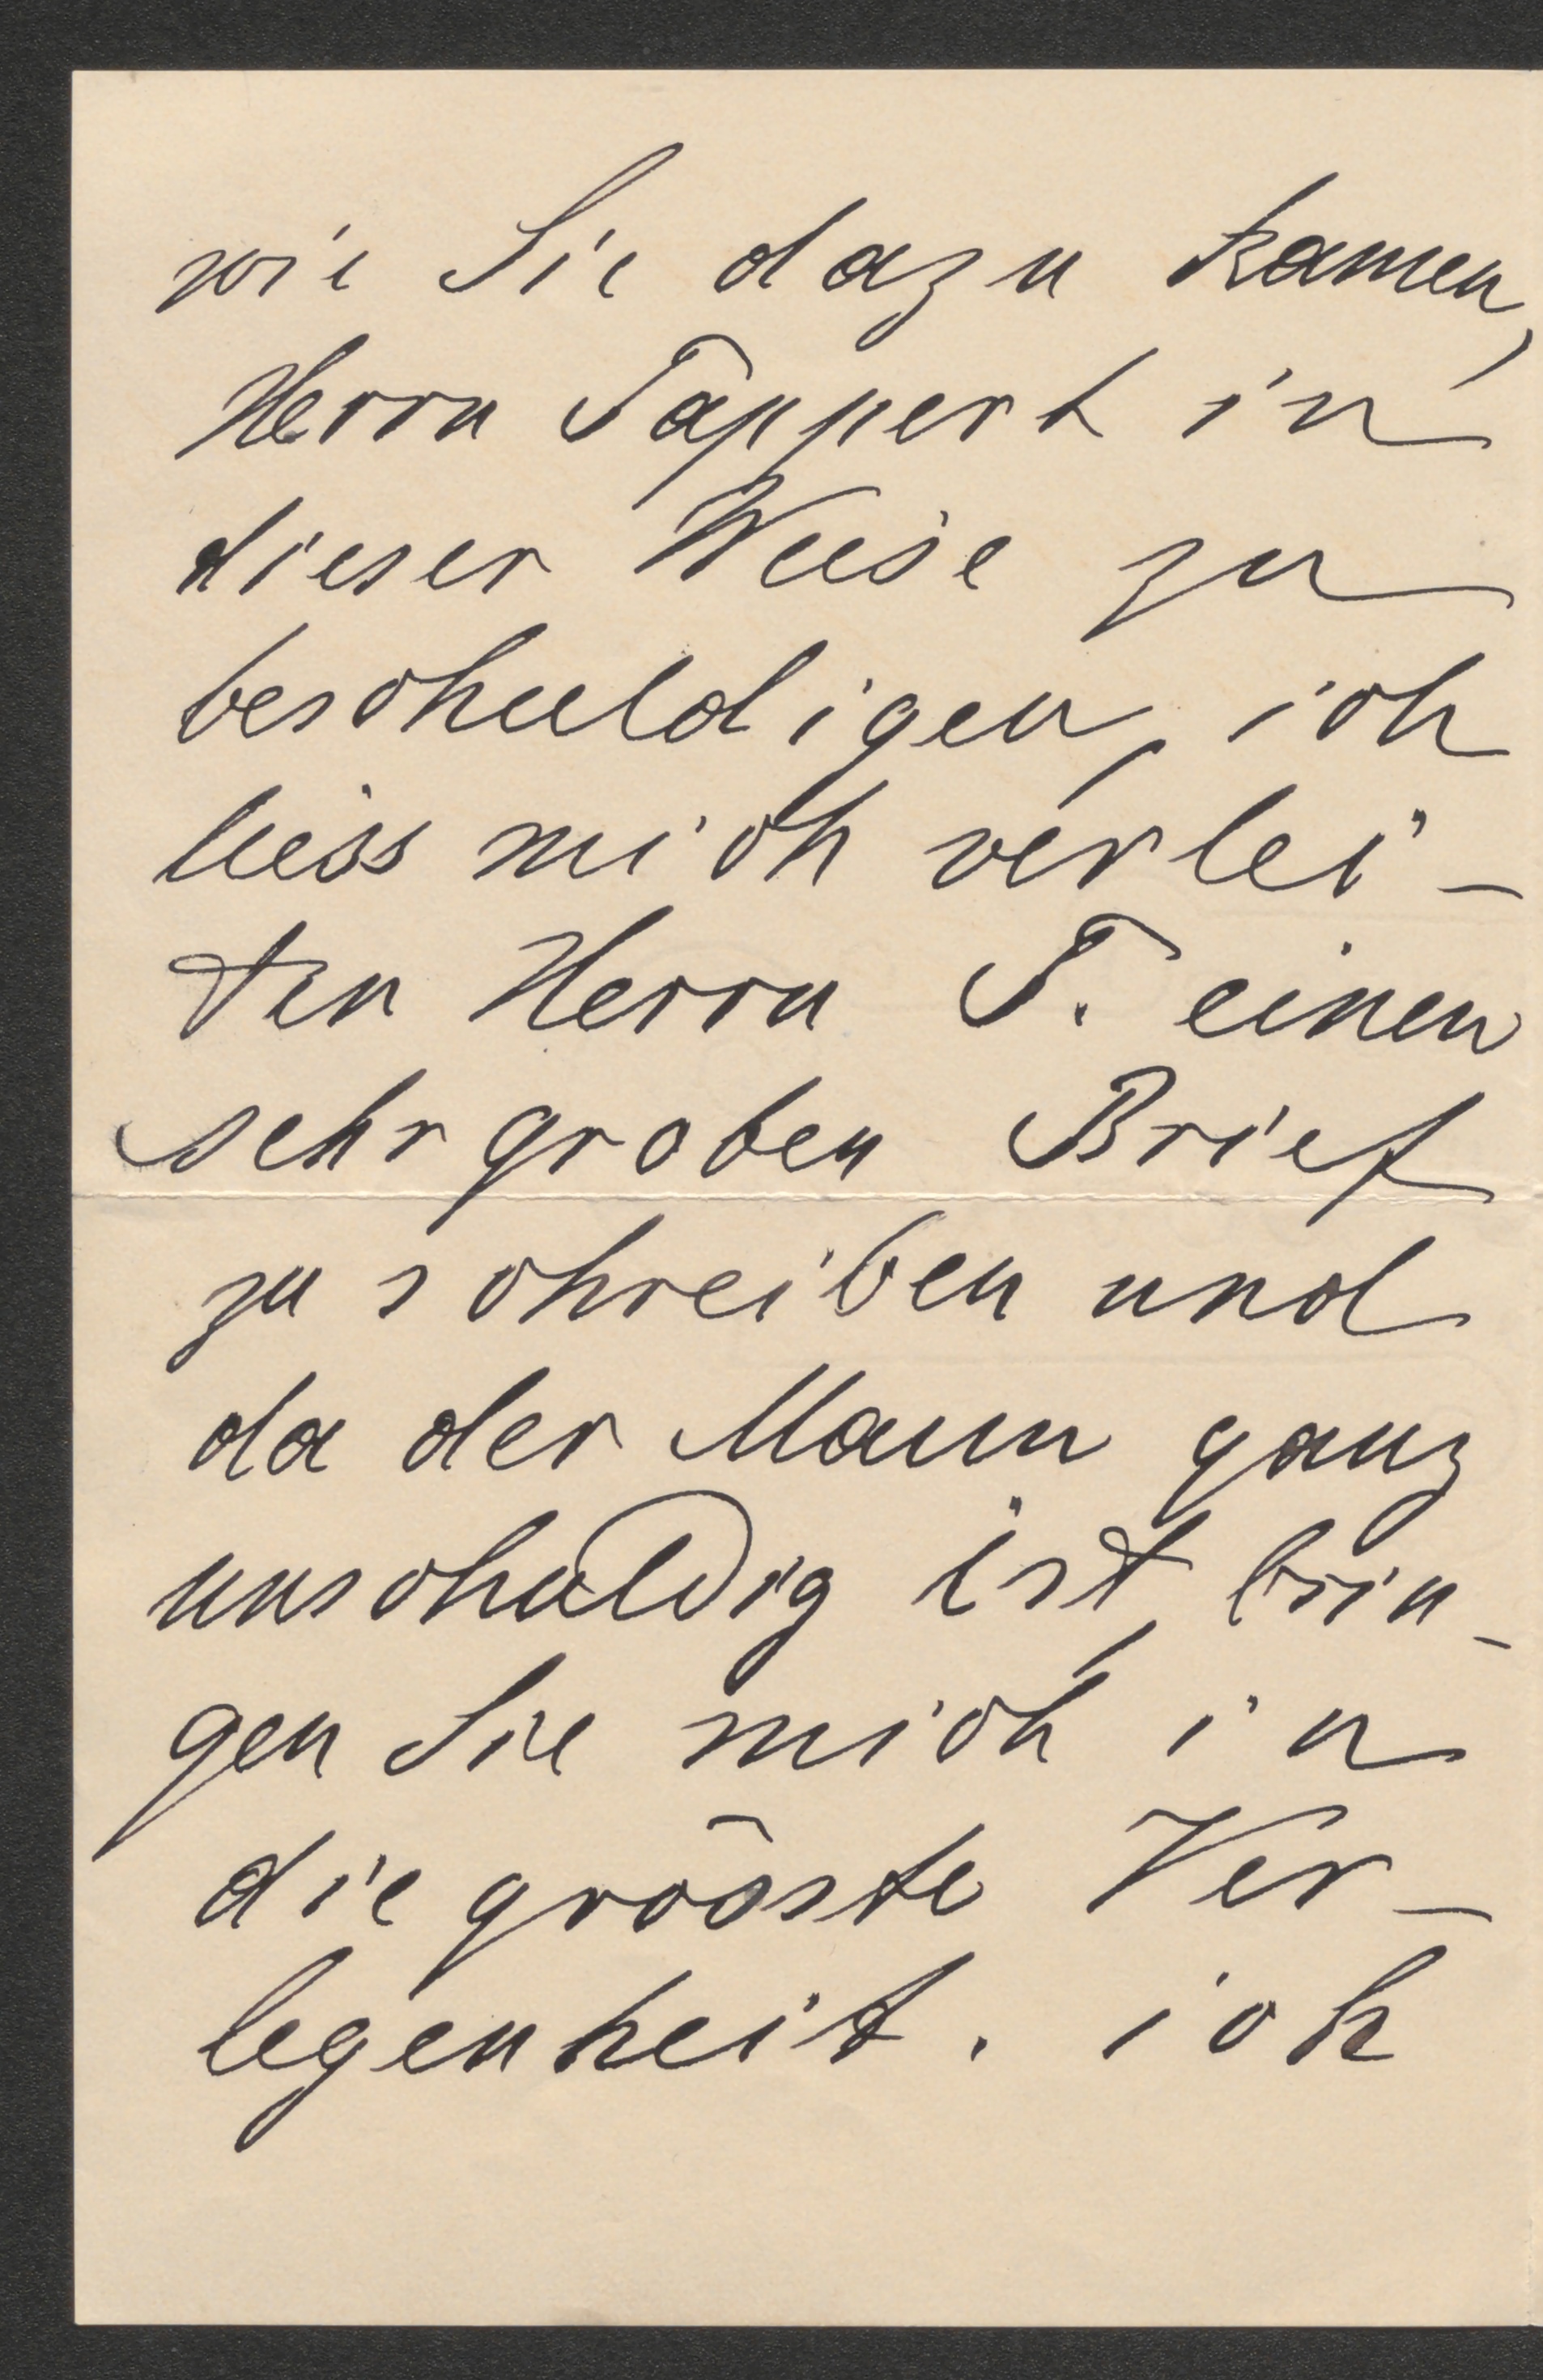 wie Sie dazu kamen,
Herrn Tappert in
dieser Weise zu
beschuldigen, ich
liess mich verlei-
ten Herrn T. einen
sehr groben Brief
zu schreiben und
da der Mann ganz
unschuldig ist, brin-
gen Sie mich in
die grösste Ver-
legenheit. ich